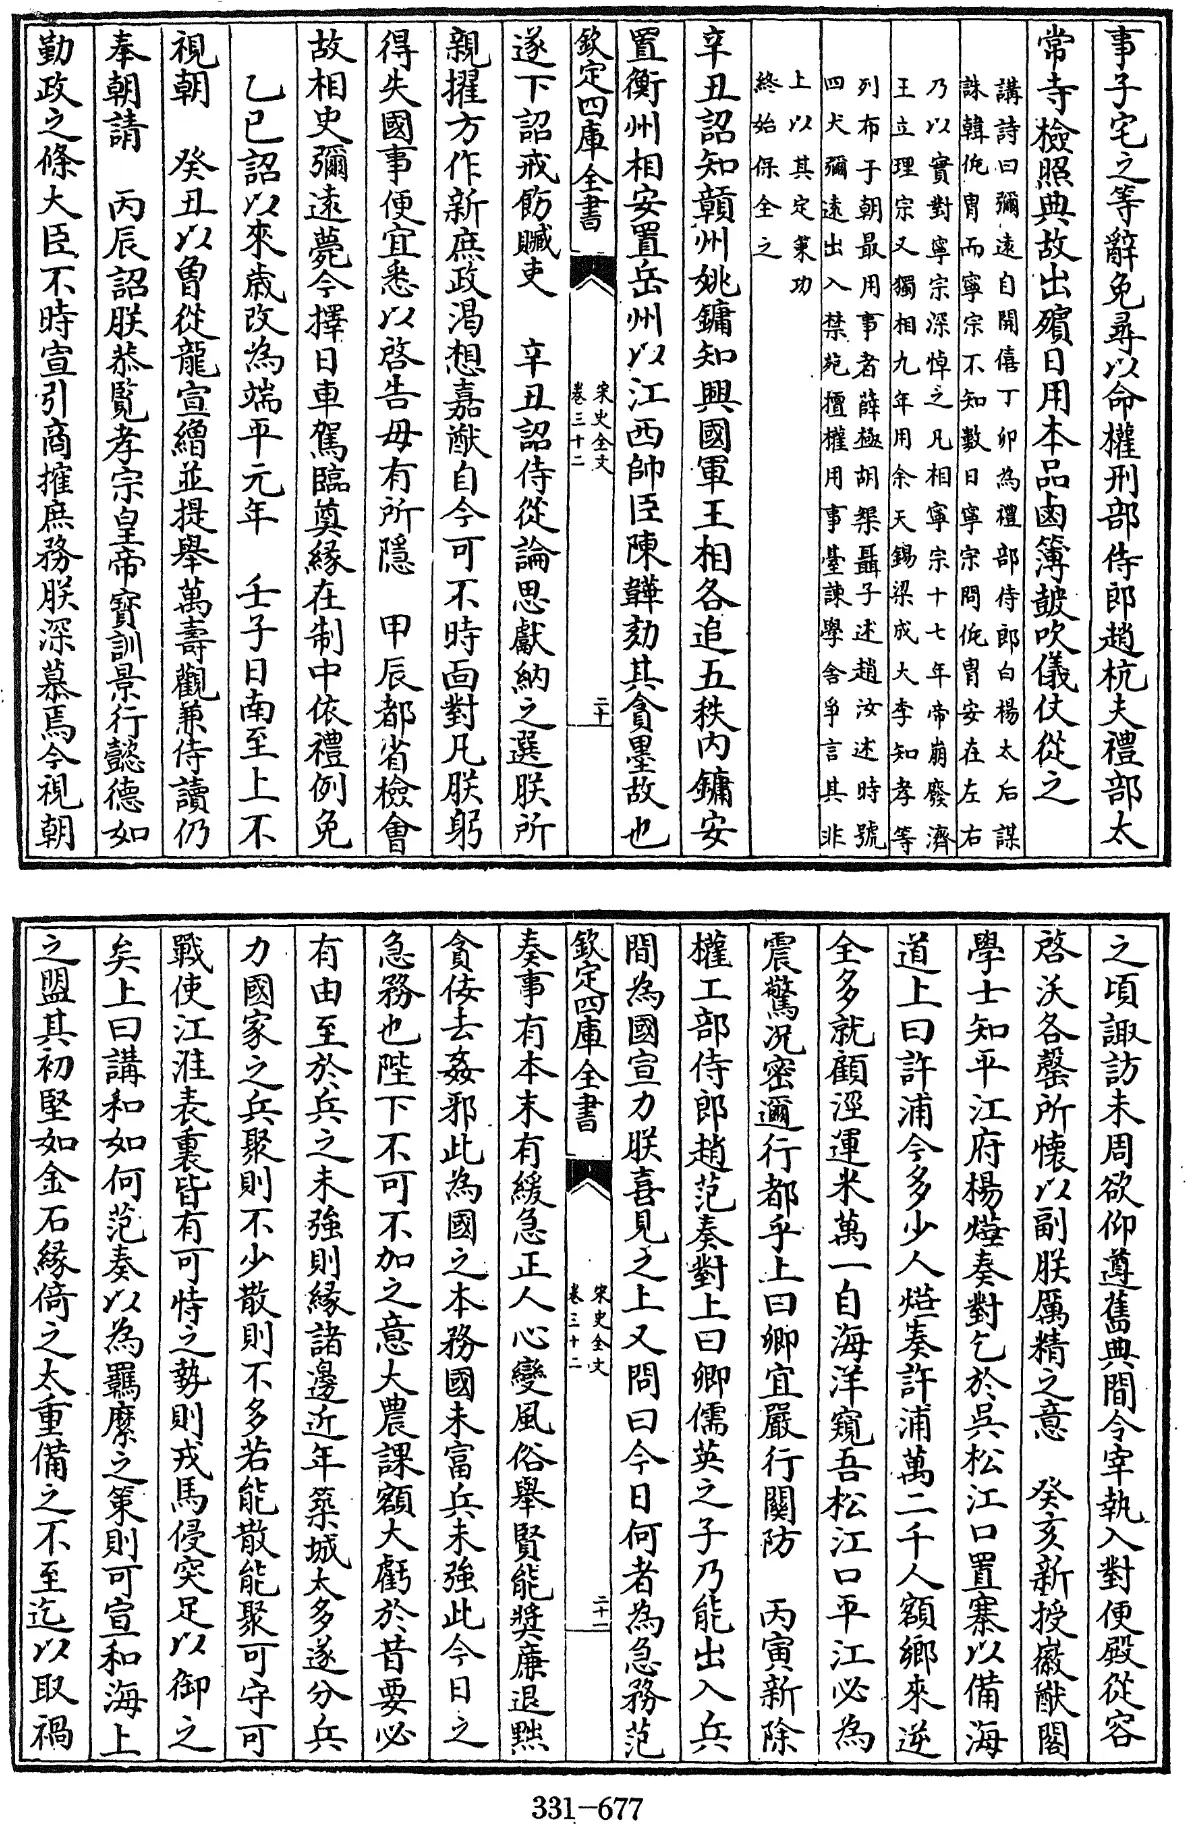 事子宅之等辭免尋以命權刑部侍郎趙杭夫禮部太
常寺檢照典故出殯日用本品鹵簿皷吹儀仗從之
講詩曰彌遠自開僖丁卯為禮部侍郎白楊太后謀
誅韓侂胄而寧宗不知數日寧宗問侂胄安在左右
乃以實對寧宗深悼之凡相寧宗十七年帝崩廢濟
王立理宗又獨相九年用余天錫梁成大李知孝等
列布于朝最用事者薛極胡榘聶子述趙汝述時號
四犬彌遠出入禁苑擅權用事臺諫學舍爭言其非
上以其定策功
終始保全之
辛丑詔知贛州姚鏞知興國軍王相各追五秩内鏞安
置衡州相安置岳州以江西帥臣陳韡劾其貪墨故也
欽定四庫全書
宋史全文
卷三十二
二十
遂下詔戒飭贓吏　辛丑詔侍從論思獻納之選朕所
親擢方作新庶政渴想嘉猷自今可不時靣對凡朕躬
得失國事便宜悉以啓告毋有所隱　甲辰都省檢會
故相史彌遠薨今擇日車駕臨奠緣在制中依禮例免
乙巳詔以來歳改為端平元年　壬子日南至上不
視朝　癸丑以曾從龍宣繒並提舉萬壽觀兼侍讀仍
奉朝請　丙辰詔朕恭覧孝宗皇帝寳訓景行懿德如
勤政之條大臣不時宣引商搉庶務朕深慕焉今視朝
之頃諏訪未周欲仰遵舊典間令宰執入對便殿從容
啓沃各罄所懷以副朕厲精之意　癸亥新授徽猷閣
學士知平江府楊𤊟奏對乞於呉松江口置寨以備海
道上曰許浦今多少人𤊟奏許浦萬二千人額鄉來逆
全多就顧涇運米萬一自海洋窺吾松江口平江必為
震驚况密邇行都乎上曰卿宜嚴行關防　丙寅新除
權工部侍郎趙范奏對上曰卿儒英之子乃能出入兵
間為國宣力朕喜見之上又問曰今日何者為急務范
欽定四庫全書
宋史全文
卷三十二
二十一
奏事有本末有緩急正人心變風俗舉賢能奬亷退黜
貪佞去姦邪此為國之本務國未富兵未強此今日之
急務也陛下不可不加之意大農課額大虧於昔要必
有由至於兵之未強則緣諸邊近年築城太多遂分兵
力國家之兵聚則不少散則不多若能散能聚可守可
戰使江淮表裏皆有可恃之勢則戎馬侵突足以御之
矣上曰講和如何范奏以為羈縻之策則可宣和海上
之盟其初堅如金石緣倚之太重備之不至迄以取禍
331-677